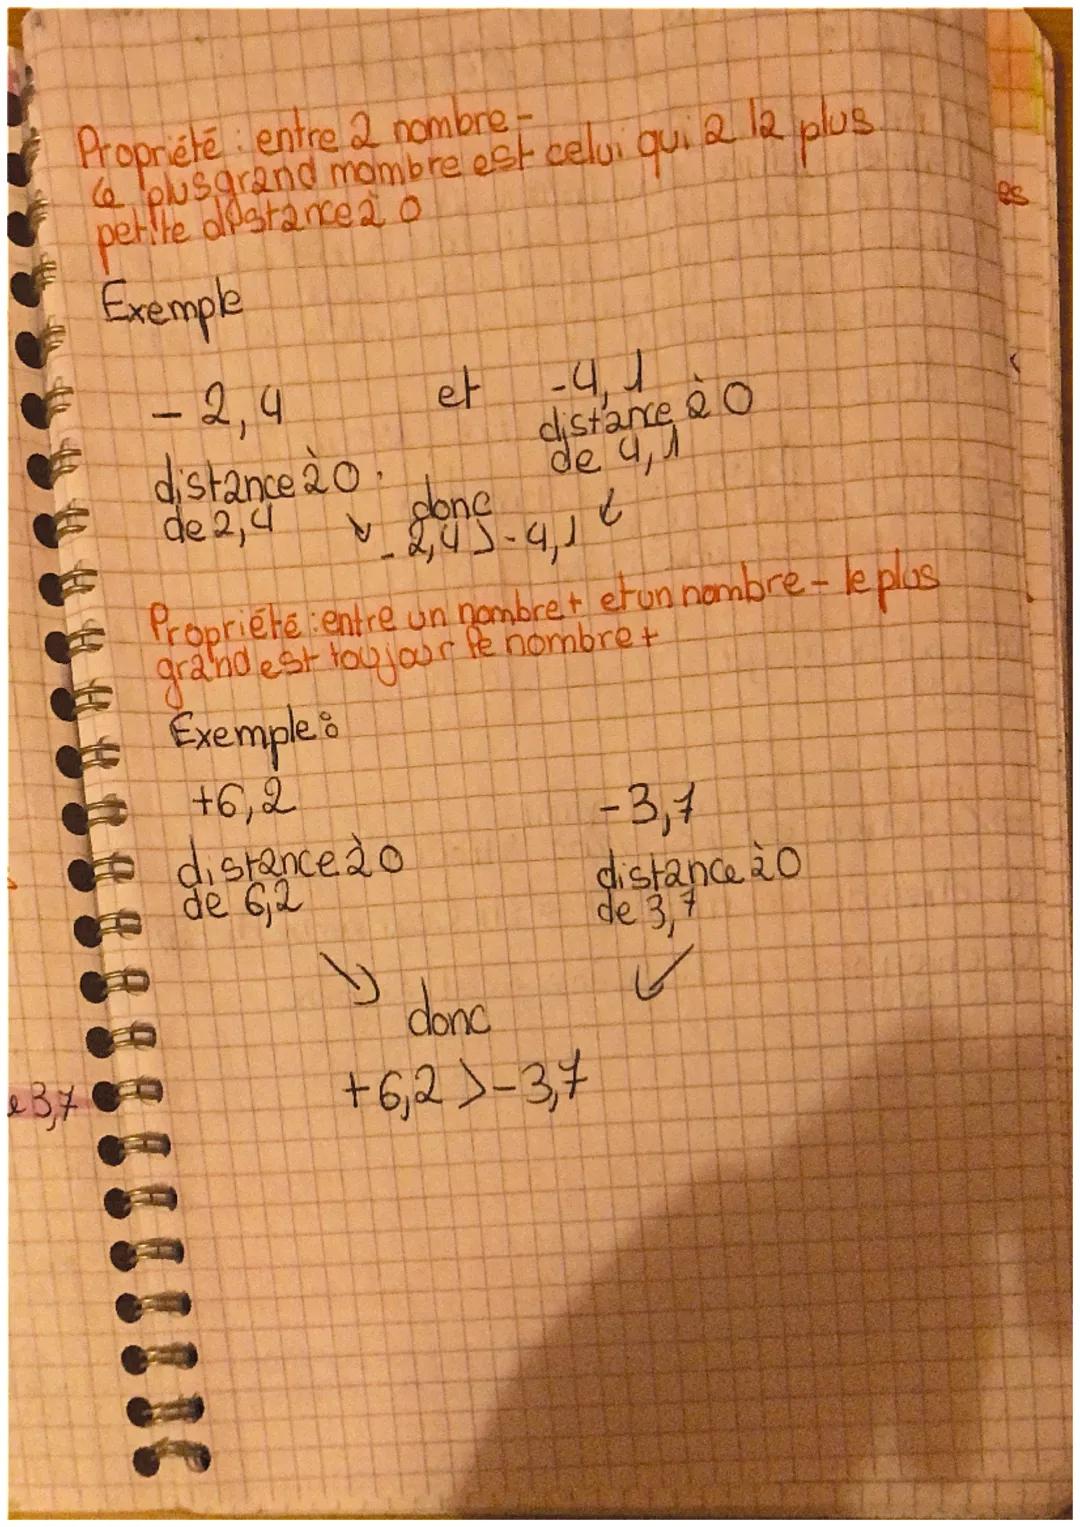 Propriété : entre 2 nombre -
le plus grand mombre est celui qui a la plus
petite distance à 0
es
Exemple
- 2,4 et -4,1
distance à 0
de 4,1
distance à 0
de 2,4
donc
- 2,4 > - 4,1
Propriété : entre un nombre + et un nombre - le plus
grand est toujour le nombre +
Exemple :
+6,2 -3,7
distance à 0 distance à 0
de 6,2 de 3,7
donc
+6,2 > -3,7
e 3,7